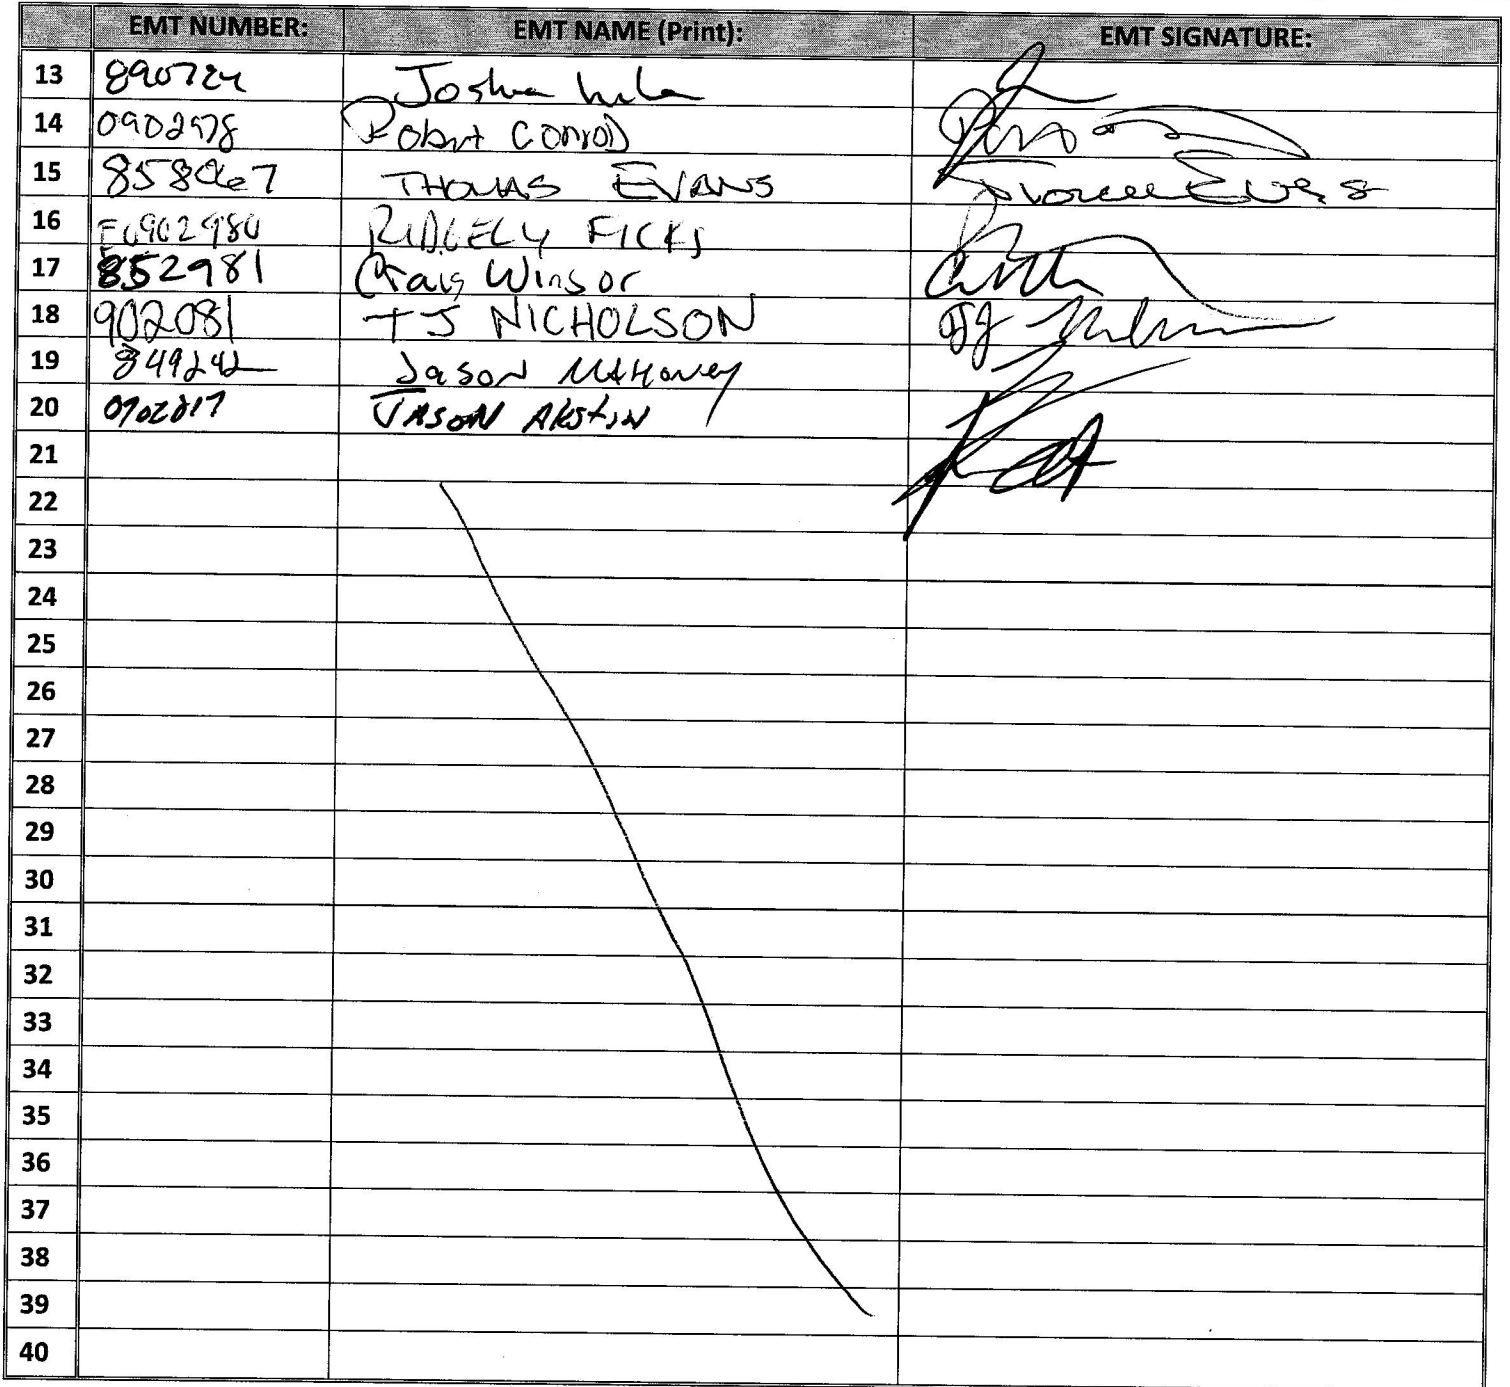 EMT NUMBER: EMT NAME (Print): EMT SIGNATURE:
13 890724 Joshua
14 0902978 Robert Conrad
15 THOMAS EVANS Thomas Evans
16 E0902980 RIDGELY FICKS
17 852981 Craig Winsor
18 902081 TJ NICHOLSON TJ
19 849242 Jason Mahoney
20 JASON AKSTIN
21
22
23
24
25
26
27
28
29
30
31
32
33
34
35
36
37
38
39
40